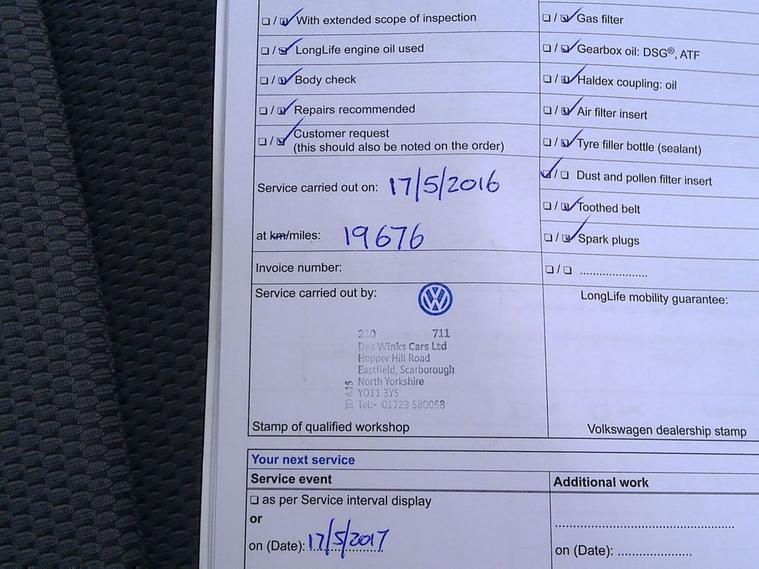 ❏ / ☑ With extended scope of inspection
❏ / ☑ LongLife engine oil used
❏ / ☑ Body check
❏ / ☑ Repairs recommended
❏ / ☑ Customer request
(this should also be noted on the order)
❏ / ☑ Gas filter
❏ / ☑ Gearbox oil: DSG®, ATF
❏ / ☑ Haldex coupling: oil
❏ / ☑ Air filter insert
❏ / ☑ Tyre filler bottle (sealant)
☑ / ❏ Dust and pollen filter insert
❏ / ☑ Toothed belt
❏ / ☑ Spark plugs
❏ / ❏ ......................
Service carried out on: 17/5/2016
at km/miles: 19676
Invoice number:
Service carried out by:
VW
210 711
Des Winks Cars Ltd
Hopper Hill Road
Eastfield, Scarborough
North Yorkshire
YO11 3YS
Tel:- 01723 580058
Stamp of qualified workshop
LongLife mobility guarantee:
Volkswagen dealership stamp
Your next service
Service event
❏ as per Service interval display
or
on (Date): 17/5/2017
Additional work
......................................................
on (Date): ......................